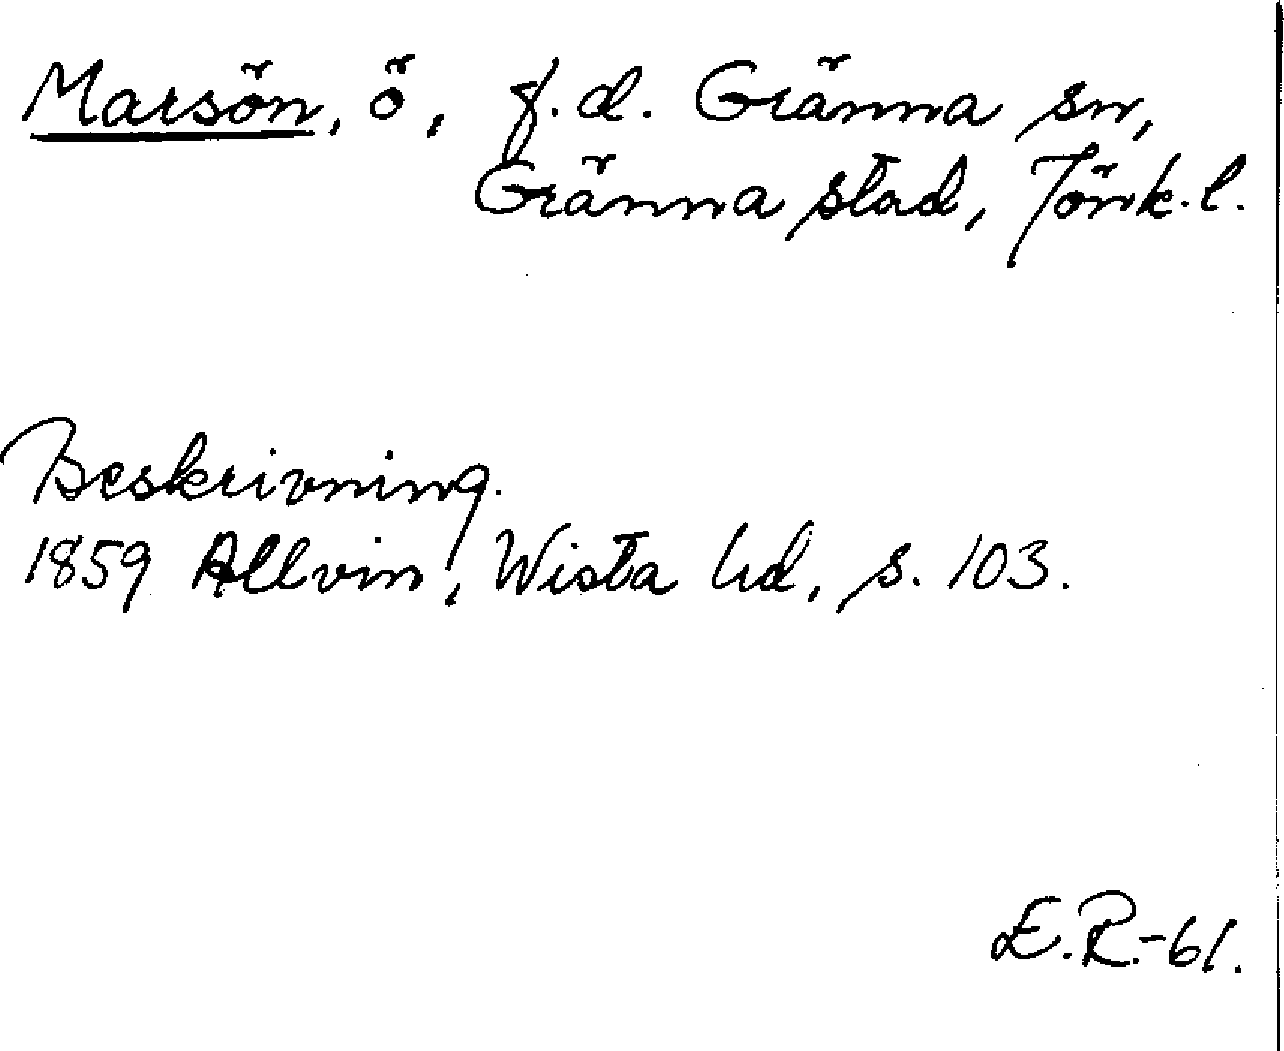 Marsön, ö, f.d. Gränna sn,
Gränna stad, Jönk.l.
Beskrivning.
1859 Allvin, Wista hd, s. 103.
E.R.-61.